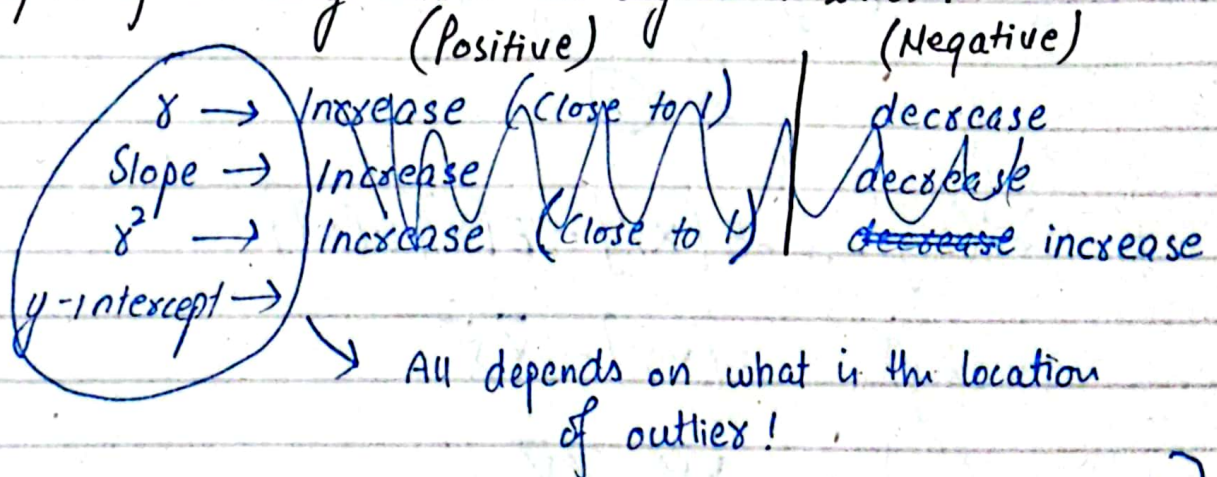 (Positive) (Negative)
r → Increase (Close to 1) decrease
Slope → Increase decrease
r² → Increase (Close to 1) decrease increase
y-intercept →
↘ All depends on what is the location
of outlier!